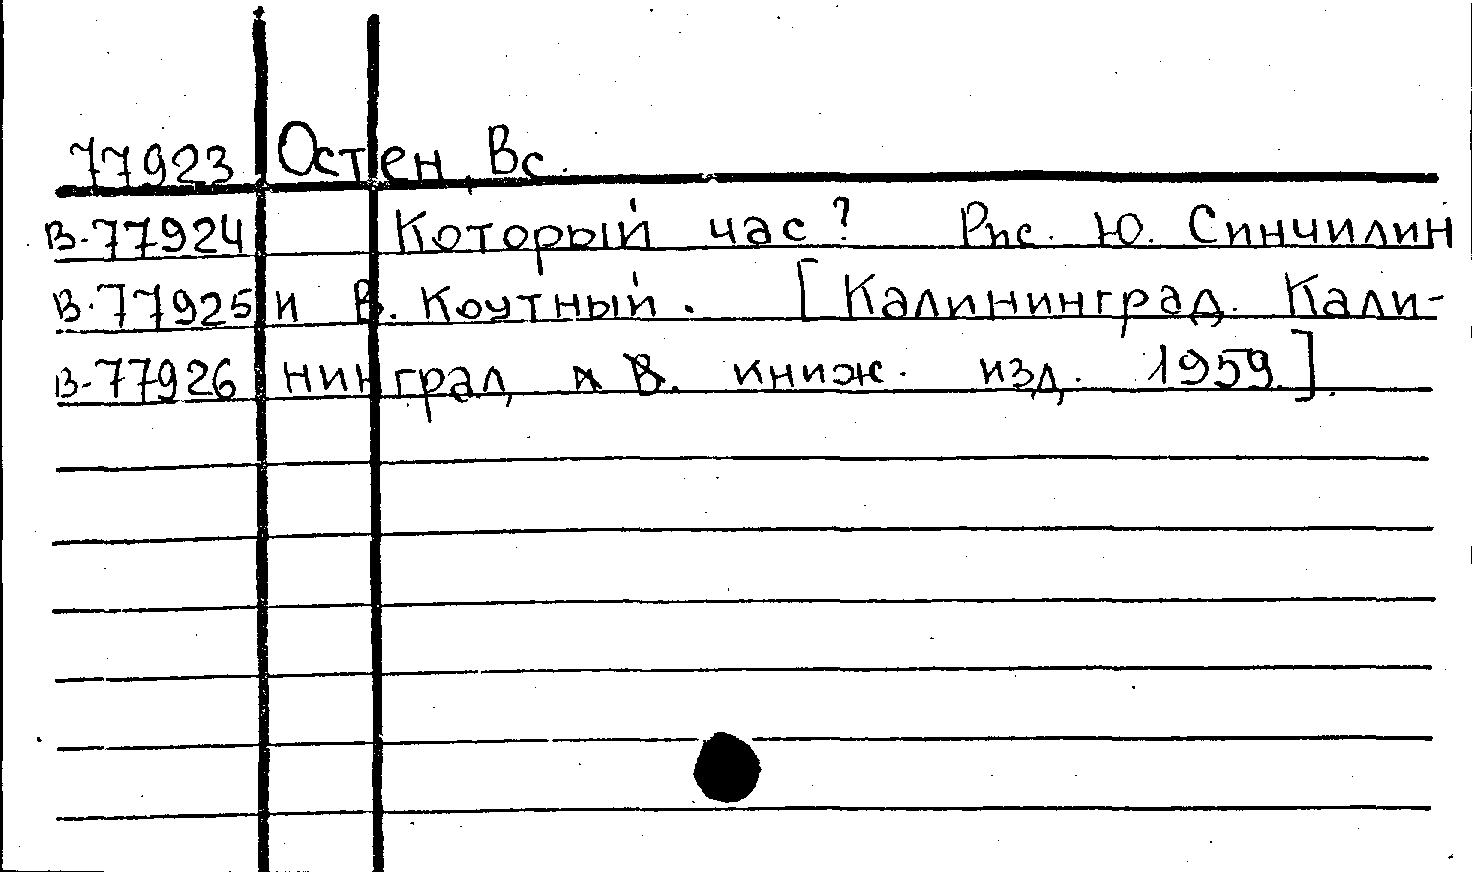 77923 Остен, Вс.
В-77924 Который час? Рис. Ю. Синчилин
В-77925 и В. Коутный. [Калининград. Кали-
В-77926 нинград книж. изд. 1959.].